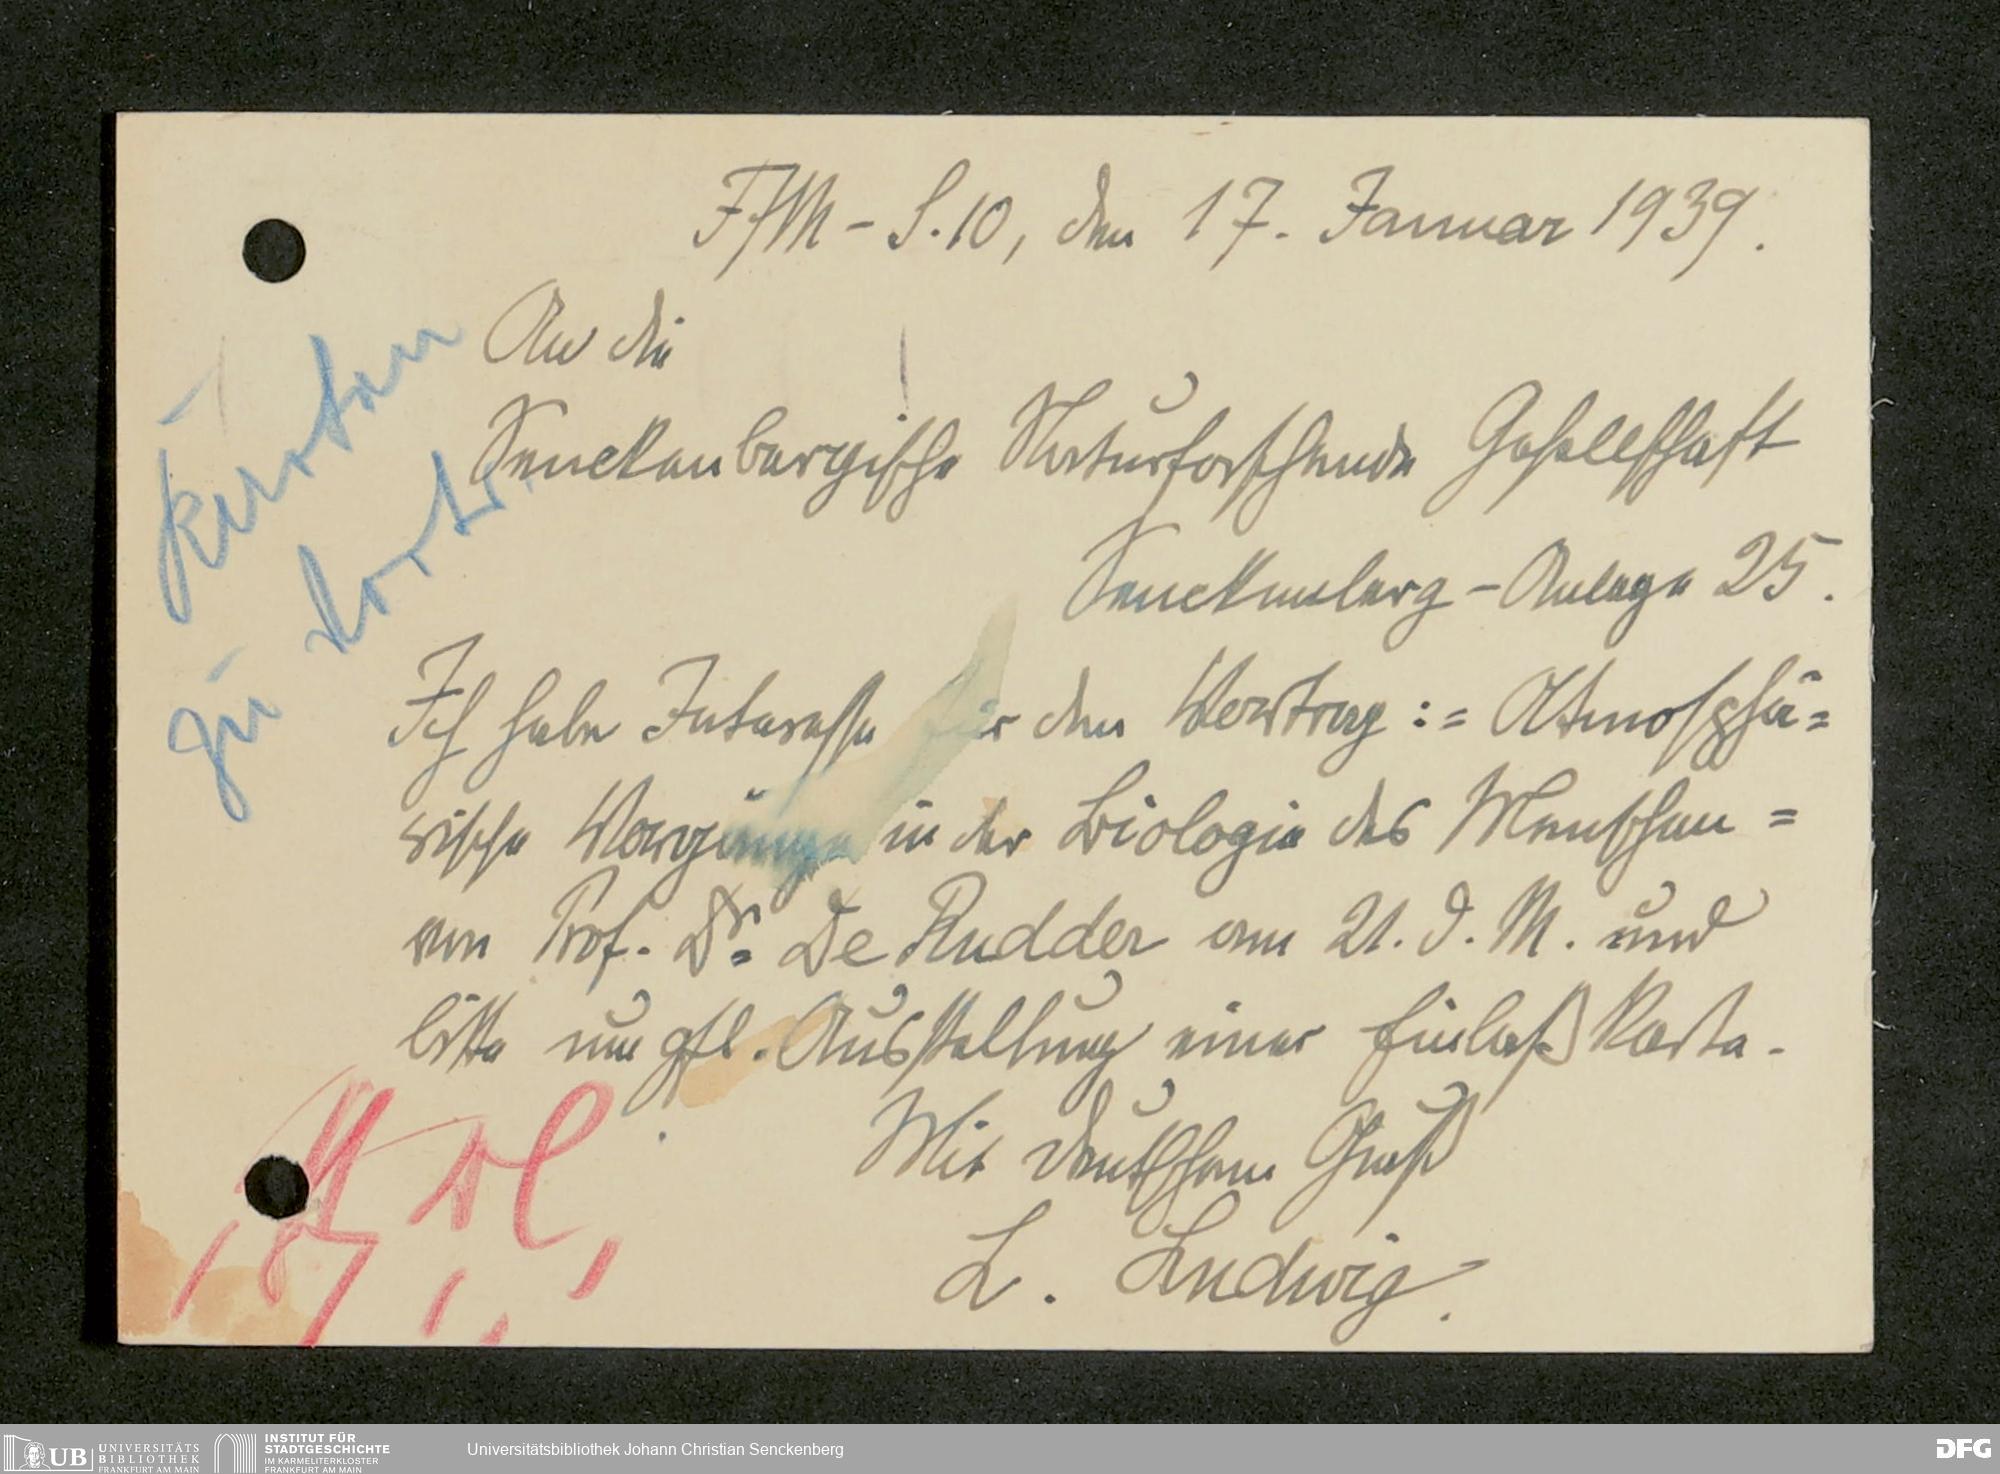 F/M - S.10, den 17. Januar 1939.
An die
Senckenbergische Naturforschende Gesellschaft
Senckenberg-Anlage 25.
Ich habe Interesse für den Vortrag := Atmosphä=
rische Vorgänge in der Biologie des Menschen =
von Prof. Dr. De Rudder am 21. d. M. und
bitte um gfl. Ausstellung einer Einlaß Karte.
Mit deutschem Gruß
L. Ludwig.
Karten
zu
UB UNIVERSITÄTS
BIBLIOTHEK
FRANKFURT AM MAIN
INSTITUT FÜR
STADTGESCHICHTE
IM KARMELITERKLOSTER
FRANKFURT AM MAIN
Universitätsbibliothek Johann Christian Senckenberg
DFG